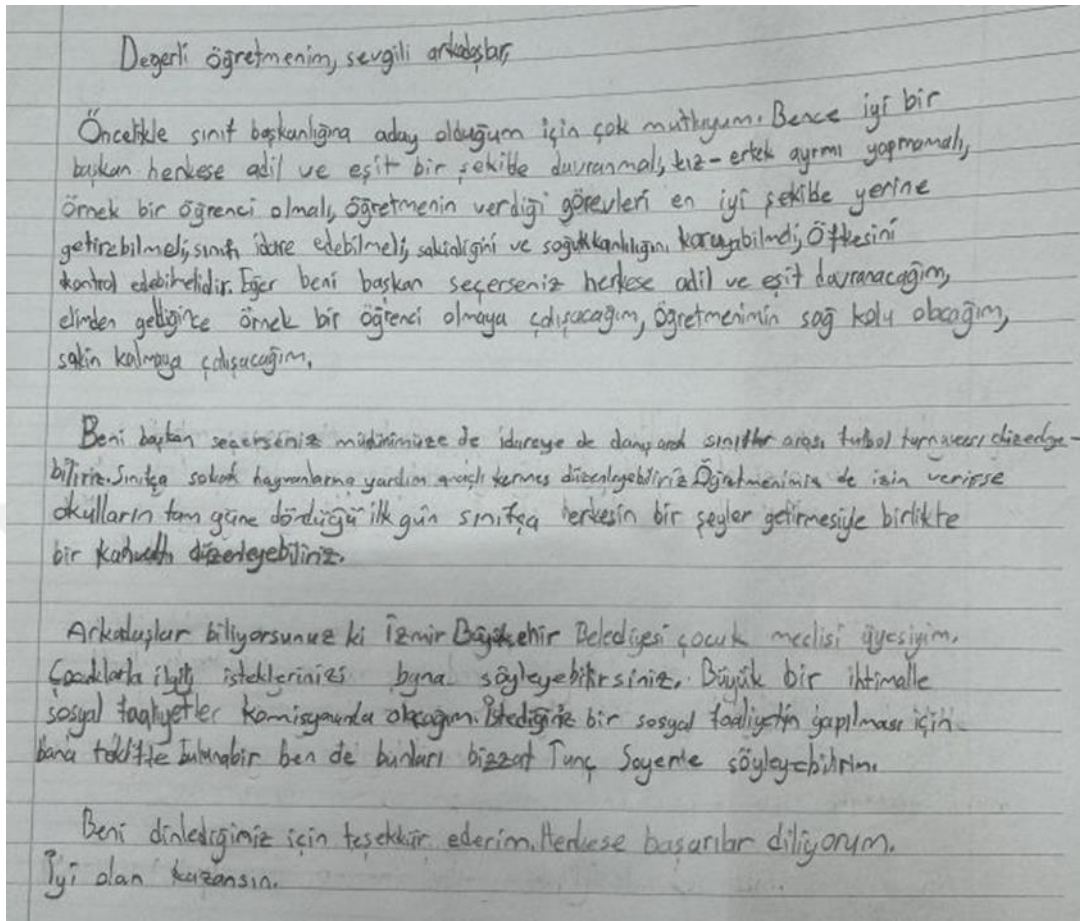 Değerli öğretmenim, sevgili arkadaşlar,
Öncelikle sınıf başkanlığına aday olduğum için çok mutluyum. Bence iyi bir
başkan herkese adil ve eşit bir şekilde davranmalı, kız-erkek ayrımı yapmamalı,
örnek bir öğrenci olmalı, öğretmenin verdiği görevleri en iyi şekilde yerine
getirebilmeli, sınıfı idare edebilmeli, sakinliğini ve soğukkanlılığını koruyabilmeli, Öfkesini
kontrol edebilmelidir. Eğer beni başkan seçerseniz herkese adil ve eşit davranacağım,
elimden geldiğince örnek bir öğrenci olmaya çalışacağım, öğretmenimin sağ kolu olacağım,
sakin kalmaya çalışacağım.
Beni başkan seçerseniz müdürümüze de idareye de danışarak sınıflar arası futbol turnuvası düzenleye-
biliriz. Sınıfça sokak hayvanlarına yardım amaçlı kermes düzenleyebiliriz Öğretmenimiz de izin verirse
okulların tam güne döndüğü ilk gün sınıfça herkesin bir şeyler getirmesiyle birlikte
bir kahvaltı düzenleyebiliriz.
Arkadaşlar biliyorsunuz ki İzmir Büyükşehir Belediyesi çocuk meclisi üyesiyim.
Çocuklarla ilgili isteklerinizi bana söyleyebilirsiniz. Büyük bir ihtimalle
sosyal faaliyetler komisyonunda olacağım. İstediğiniz bir sosyal faaliyetin yapılması için
bana teklifte ben de bunları bizzat Tunç Soyer'le söyleyebilirim.
Beni dinlediğimiz için teşekkür ederim. Herkese başarılar diliyorum.
İyi olan kazansın.